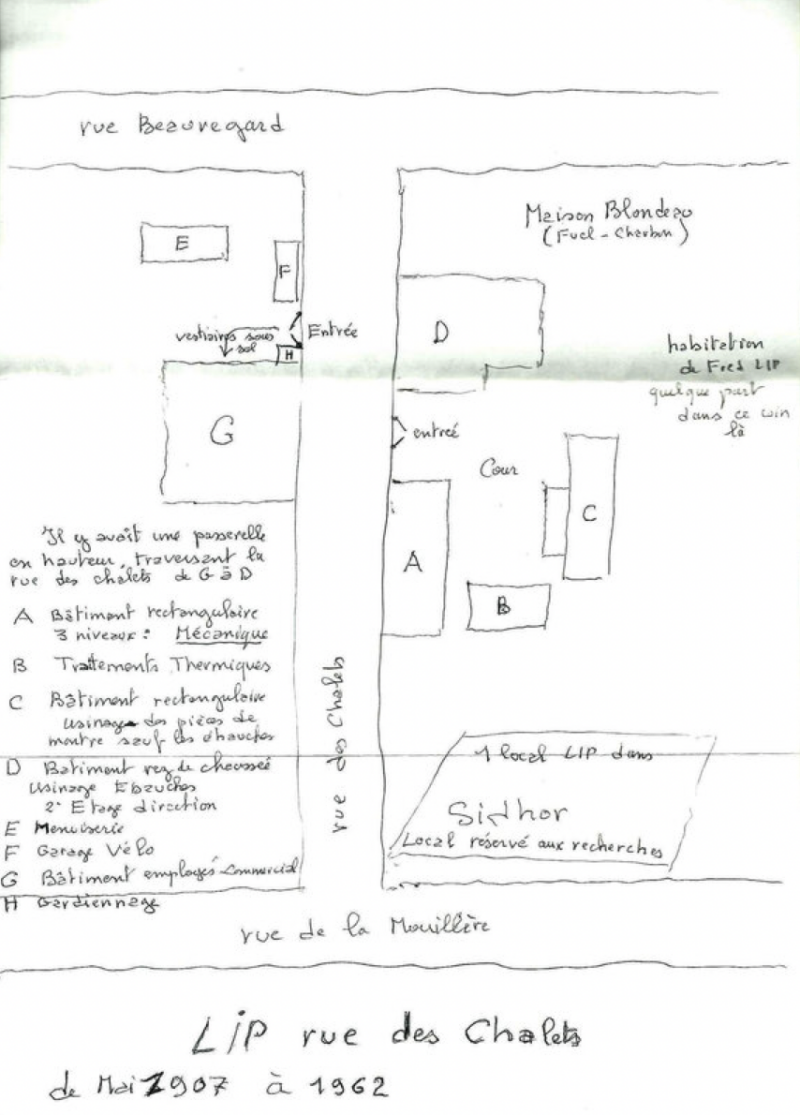 rue Beauregard
Maison Blondeau
(Fuel - Charbon)
E
F
vestiaires sous
sol
H
Entrée
D
habitation
de Fred LIP
quelque part
dans ce coin
là
G
entreé
Cour
C
A
B
Il y avait une passerelle
en hauteur, traversant la
rue des chalets de G à D
A Bâtiment rectangulaire
3 niveaux : Mécanique
B Traitements Thermiques
C Bâtiment rectangulaire
Usinage des pièces de
montre sauf les ébauches
D Batiment rez de chausseé
Usinage Ebauches
2° Etage direction
E Menuiserie
F Garage Vélo
G Bâtiment employés Commercial
H Gardiennage
rue des Chalets
1 local LIP dans
Sidhor
Local réservé aux recherches
rue de la Mouillère
LIP rue des Chalets
de Mai 1907 à 1962